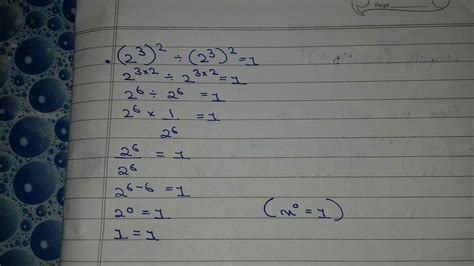 Page
(2³)² ÷ (2³)² = 1
2³ˣ² ÷ 2³ˣ² = 1
2⁶ ÷ 2⁶ = 1
2⁶ × 1/2⁶ = 1
2⁶/2⁶ = 1
2⁶⁻⁶ = 1
2⁰ = 1 (x⁰ = 1)
1 = 1